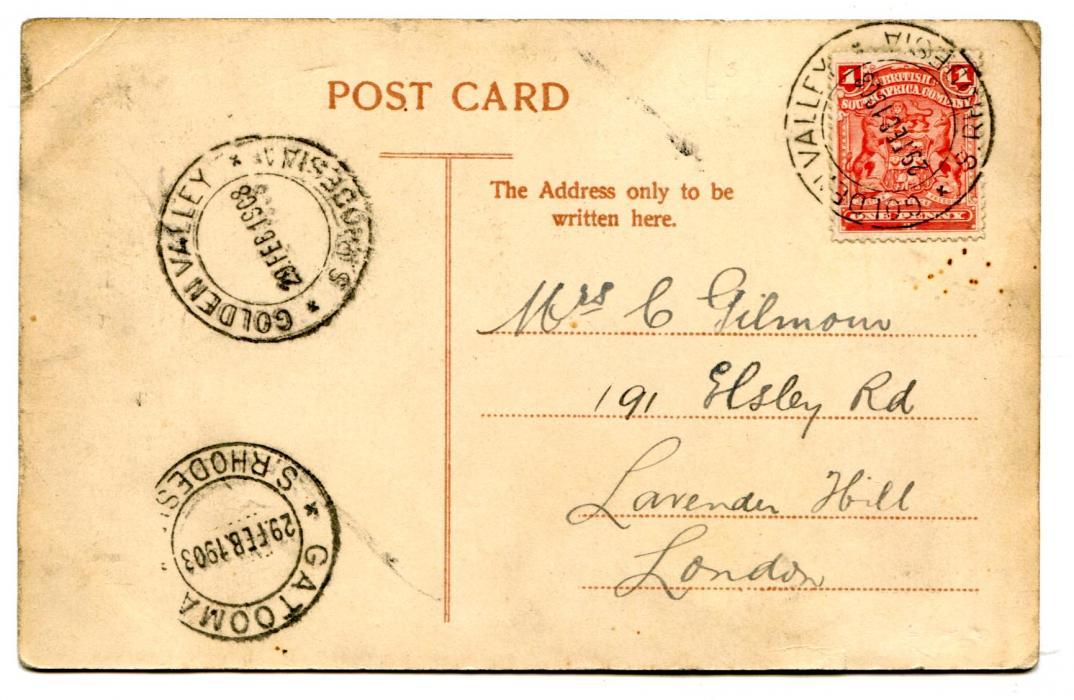 POST CARD
The Address only to be
written here.
1 BRITISH 1
SOUTH AFRICA COMPANY
ONE PENNY
GOLDEN VALLEY * S. RHODESIA *
29 FEB 1908
GOLDEN VALLEY * S. RHODESIA *
29 FEB 1908
Mrs C Gilmour
191 Elsley Rd
Lavender Hill
London
* GATOOMA
S. RHODES
29 FEB. 1903